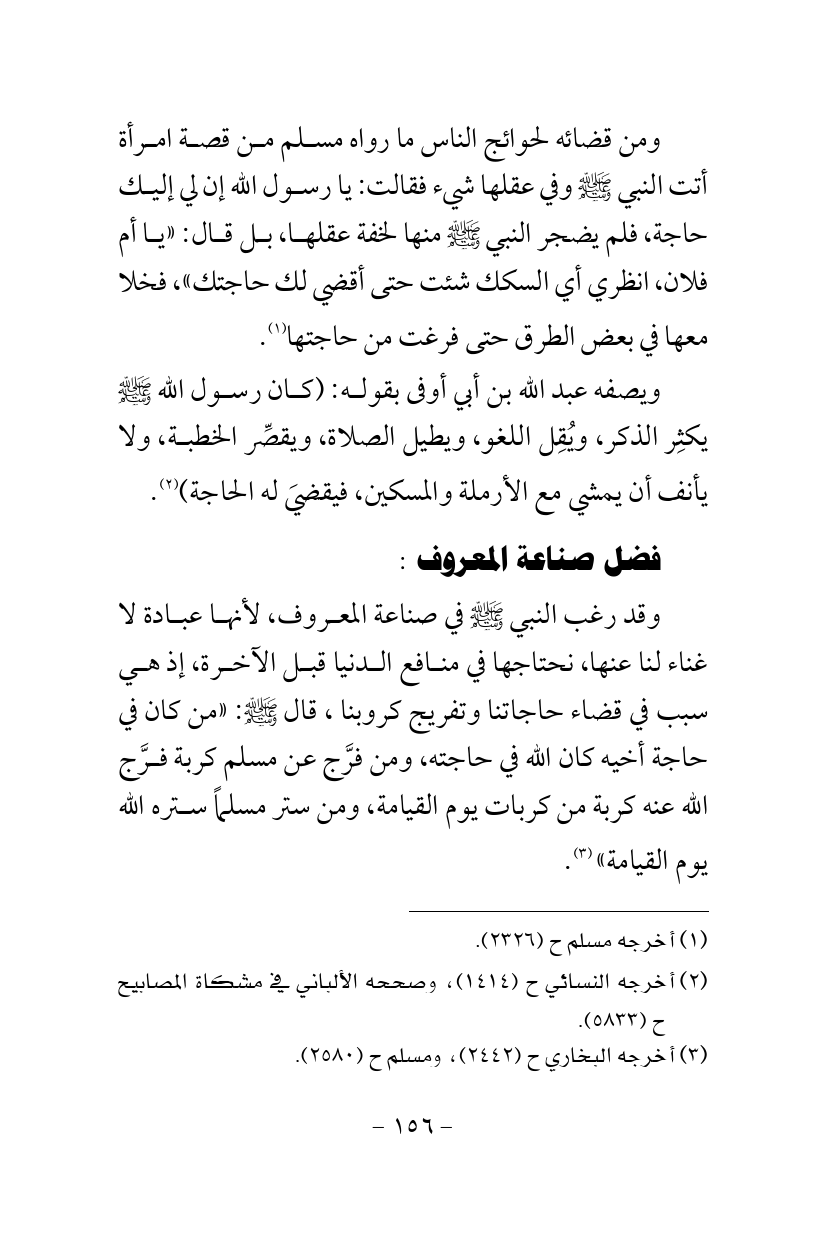 ومن قضائه لحوائج الناس ما رواه مسلم من قصة امرأة
أتت النبي ﷺ وفي عقلها شيء فقالت: يا رسول الله إن لي إليك
حاجة، فلم يضجر النبي ﷺ منها لخفة عقلها، بل قال: «يا أم
فلان، انظري أي السكك شئت حتى أقضي لك حاجتك»، فخلا
معها في بعض الطرق حتى فرغت من حاجتها(١).
ويصفه عبد الله بن أبي أوفى بقوله: (كان رسول الله ﷺ
يكثِر الذكر، ويُقِل اللغو، ويطيل الصلاة، ويقصِّر الخطبة، ولا
يأنف أن يمشي مع الأرملة والمسكين، فيقضيَ له الحاجة)(٢).
فضل صناعة المعروف :
وقد رغب النبي ﷺ في صناعة المعروف، لأنها عبادة لا
غناء لنا عنها، نحتاجها في منافع الدنيا قبل الآخرة، إذ هي
سبب في قضاء حاجاتنا وتفريج كروبنا ، قال ﷺ: «من كان في
حاجة أخيه كان الله في حاجته، ومن فرَّج عن مسلم كربة فرَّج
الله عنه كربة من كربات يوم القيامة، ومن ستر مسلماً ستره الله
يوم القيامة»(٣).
(١) أخرجه مسلم ح (٢٣٢٦).
(٢) أخرجه النسائي ح (١٤١٤)، وصححه الألباني في مشكاة المصابيح
ح (٥٨٣٣).
(٣) أخرجه البخاري ح (٢٤٤٢)، ومسلم ح (٢٥٨٠).
- ١٥٦ -